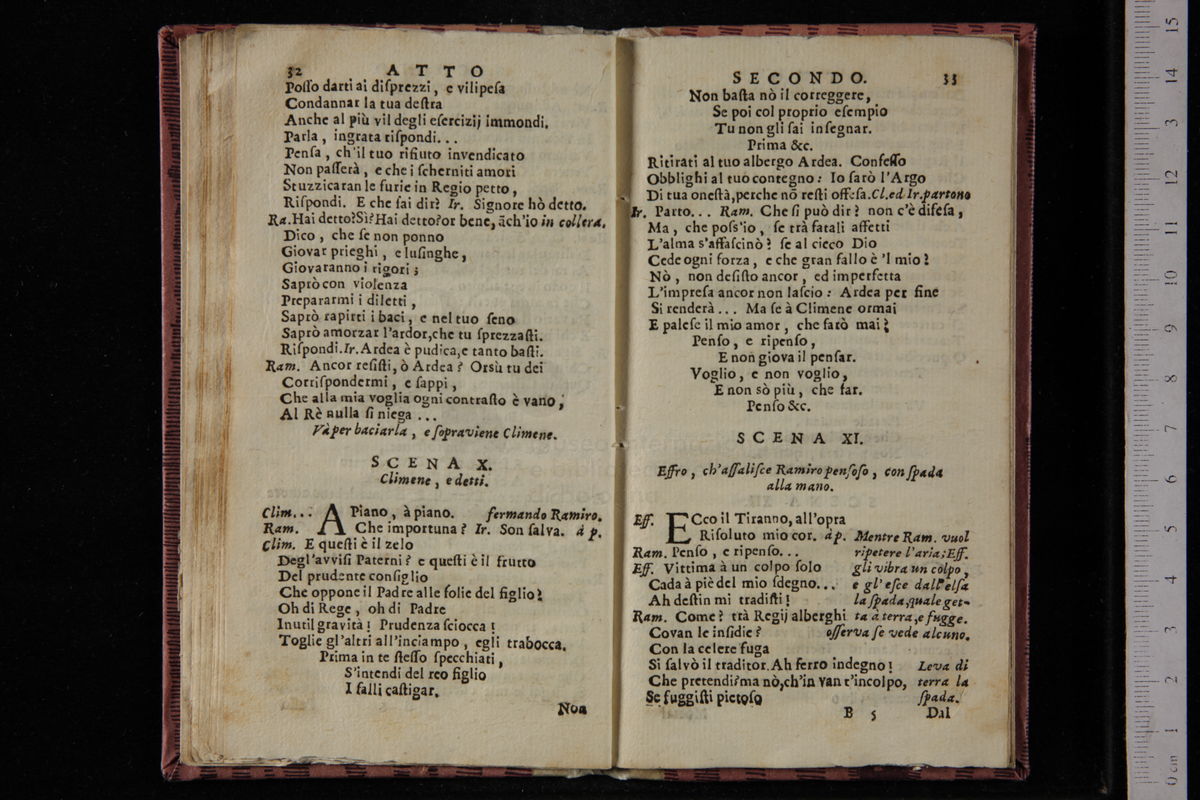 32 ATTO
Poſſo darti ai diſprezzi, e vilipeſa
Condannar la tua deſtra
Anche al più vil degli eſercizij immondi.
Parla, ingrata riſpondi...
Penſa, ch'il tuo rifiuto invendicato
Non paſſerà, e che i ſcherniti amori
Stuzzicaran le furie in Regio petto,
Riſpondi. E che ſai dir? Ir. Signore hò detto.
Ra. Hai detto? Sì? Hai detto? or bene, āch'io in collera.
Dico, che ſe non ponno
Giovar prieghi, e luſinghe,
Giovaranno i rigori;
Saprò con violenza
Prepararmi i diletti,
Saprò rapirti i baci, e nel tuo ſeno
Saprò amorzar l'ardor, che tu ſprezzaſti.
Riſpondi. Ir. Ardea è pudica, e tanto baſti.
Ram. Ancor reſiſti, ò Ardea? Orsù tu dei
Corriſpondermi, e ſappi,
Che alla mia voglia ogni contraſto è vano;
Al Rè nulla ſi niega...
Và per baciarla, e ſopraviene Climene.
SCENA X.
Climene, e detti.
Clim... A Piano, à piano. fermando Ramiro.
Ram. Che importuna? Ir. Son ſalva. à p.
Clim. E queſti è il zelo
Degl'avviſi Paterni? e queſti è il frutto
Del prudente conſiglio
Che oppone il Padre alle folie del figlio?
Oh di Rege, oh di Padre
Inutil gravità! Prudenza ſciocca!
Toglie gl'altri all'inciampo, egli trabocca.
Prima in te ſteſſo ſpecchiati,
S'intendi del reo figlio
I falli caſtigar.
Non
SECONDO. 33
Non baſta nò il correggere,
Se poi col proprio eſempio
Tu non gli ſai inſegnar.
Prima &c.
Ritirati al tuo albergo Ardea. Confeſſo
Obblighi al tuo contegno: Io farò l'Argo
Di tua oneſtà, perche nō reſti offeſa. Cl. ed Ir. partono
Ir. Parto... Ram. Che ſi può dir? non c'è difeſa,
Ma, che poſs'io, ſe trà fatali affetti
L'alma s'affaſcinò? ſe al cieco Dio
Cede ogni forza, e che gran fallo è 'l mio?
Nò, non deſiſto ancor, ed imperfetta
L'impreſa ancor non laſcio: Ardea per fine
Si renderà... Ma ſe à Climene ormai
E paleſe il mio amor, che farò mai?
Penſo, e ripenſo,
E non giova il penſar.
Voglio, e non voglio,
E non sò più, che far.
Penſo &c.
SCENA XI.
Effro, ch'aſſaliſce Ramiro penſoſo, con ſpada
alla mano.
Eff. ECco il Tiranno, all'opra
Riſoluto mio cor. àp. Mentre Ram. vuol
Ram. Penſo, e ripenſo... ripetere l'aria; Eff.
Eff. Vittima à un colpo ſolo gli vibra un colpo,
Cada à piè del mio ſdegno... e gl'eſce dall'elſa
Ah deſtin mi tradiſti! la ſpada, quale get-
Ram. Come? trà Regij alberghi ta à terra, e fugge.
Covan le inſidie? oſſerva ſe vede alcuno.
Con la celere fuga
Si ſalvò il traditor. Ah ferro indegno! Leva di
Che pretendi? ma nò, ch'in van t'incolpo, terra la
Se fuggiſti pietoſo ſpada.
B 5 Dal